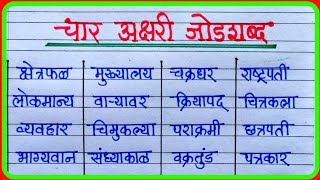 चार अक्षरी जोडशब्द
क्षेत्रफळ मुख्यालय चक्रधर राष्ट्रपती
लोकमान्य वाऱ्यावर क्रियापद् चित्रकला
व्यवहार चिमुकल्या पराक्रमी छत्रपती
भाग्यवान संध्याकाळ वक्रतुंड पत्रकार